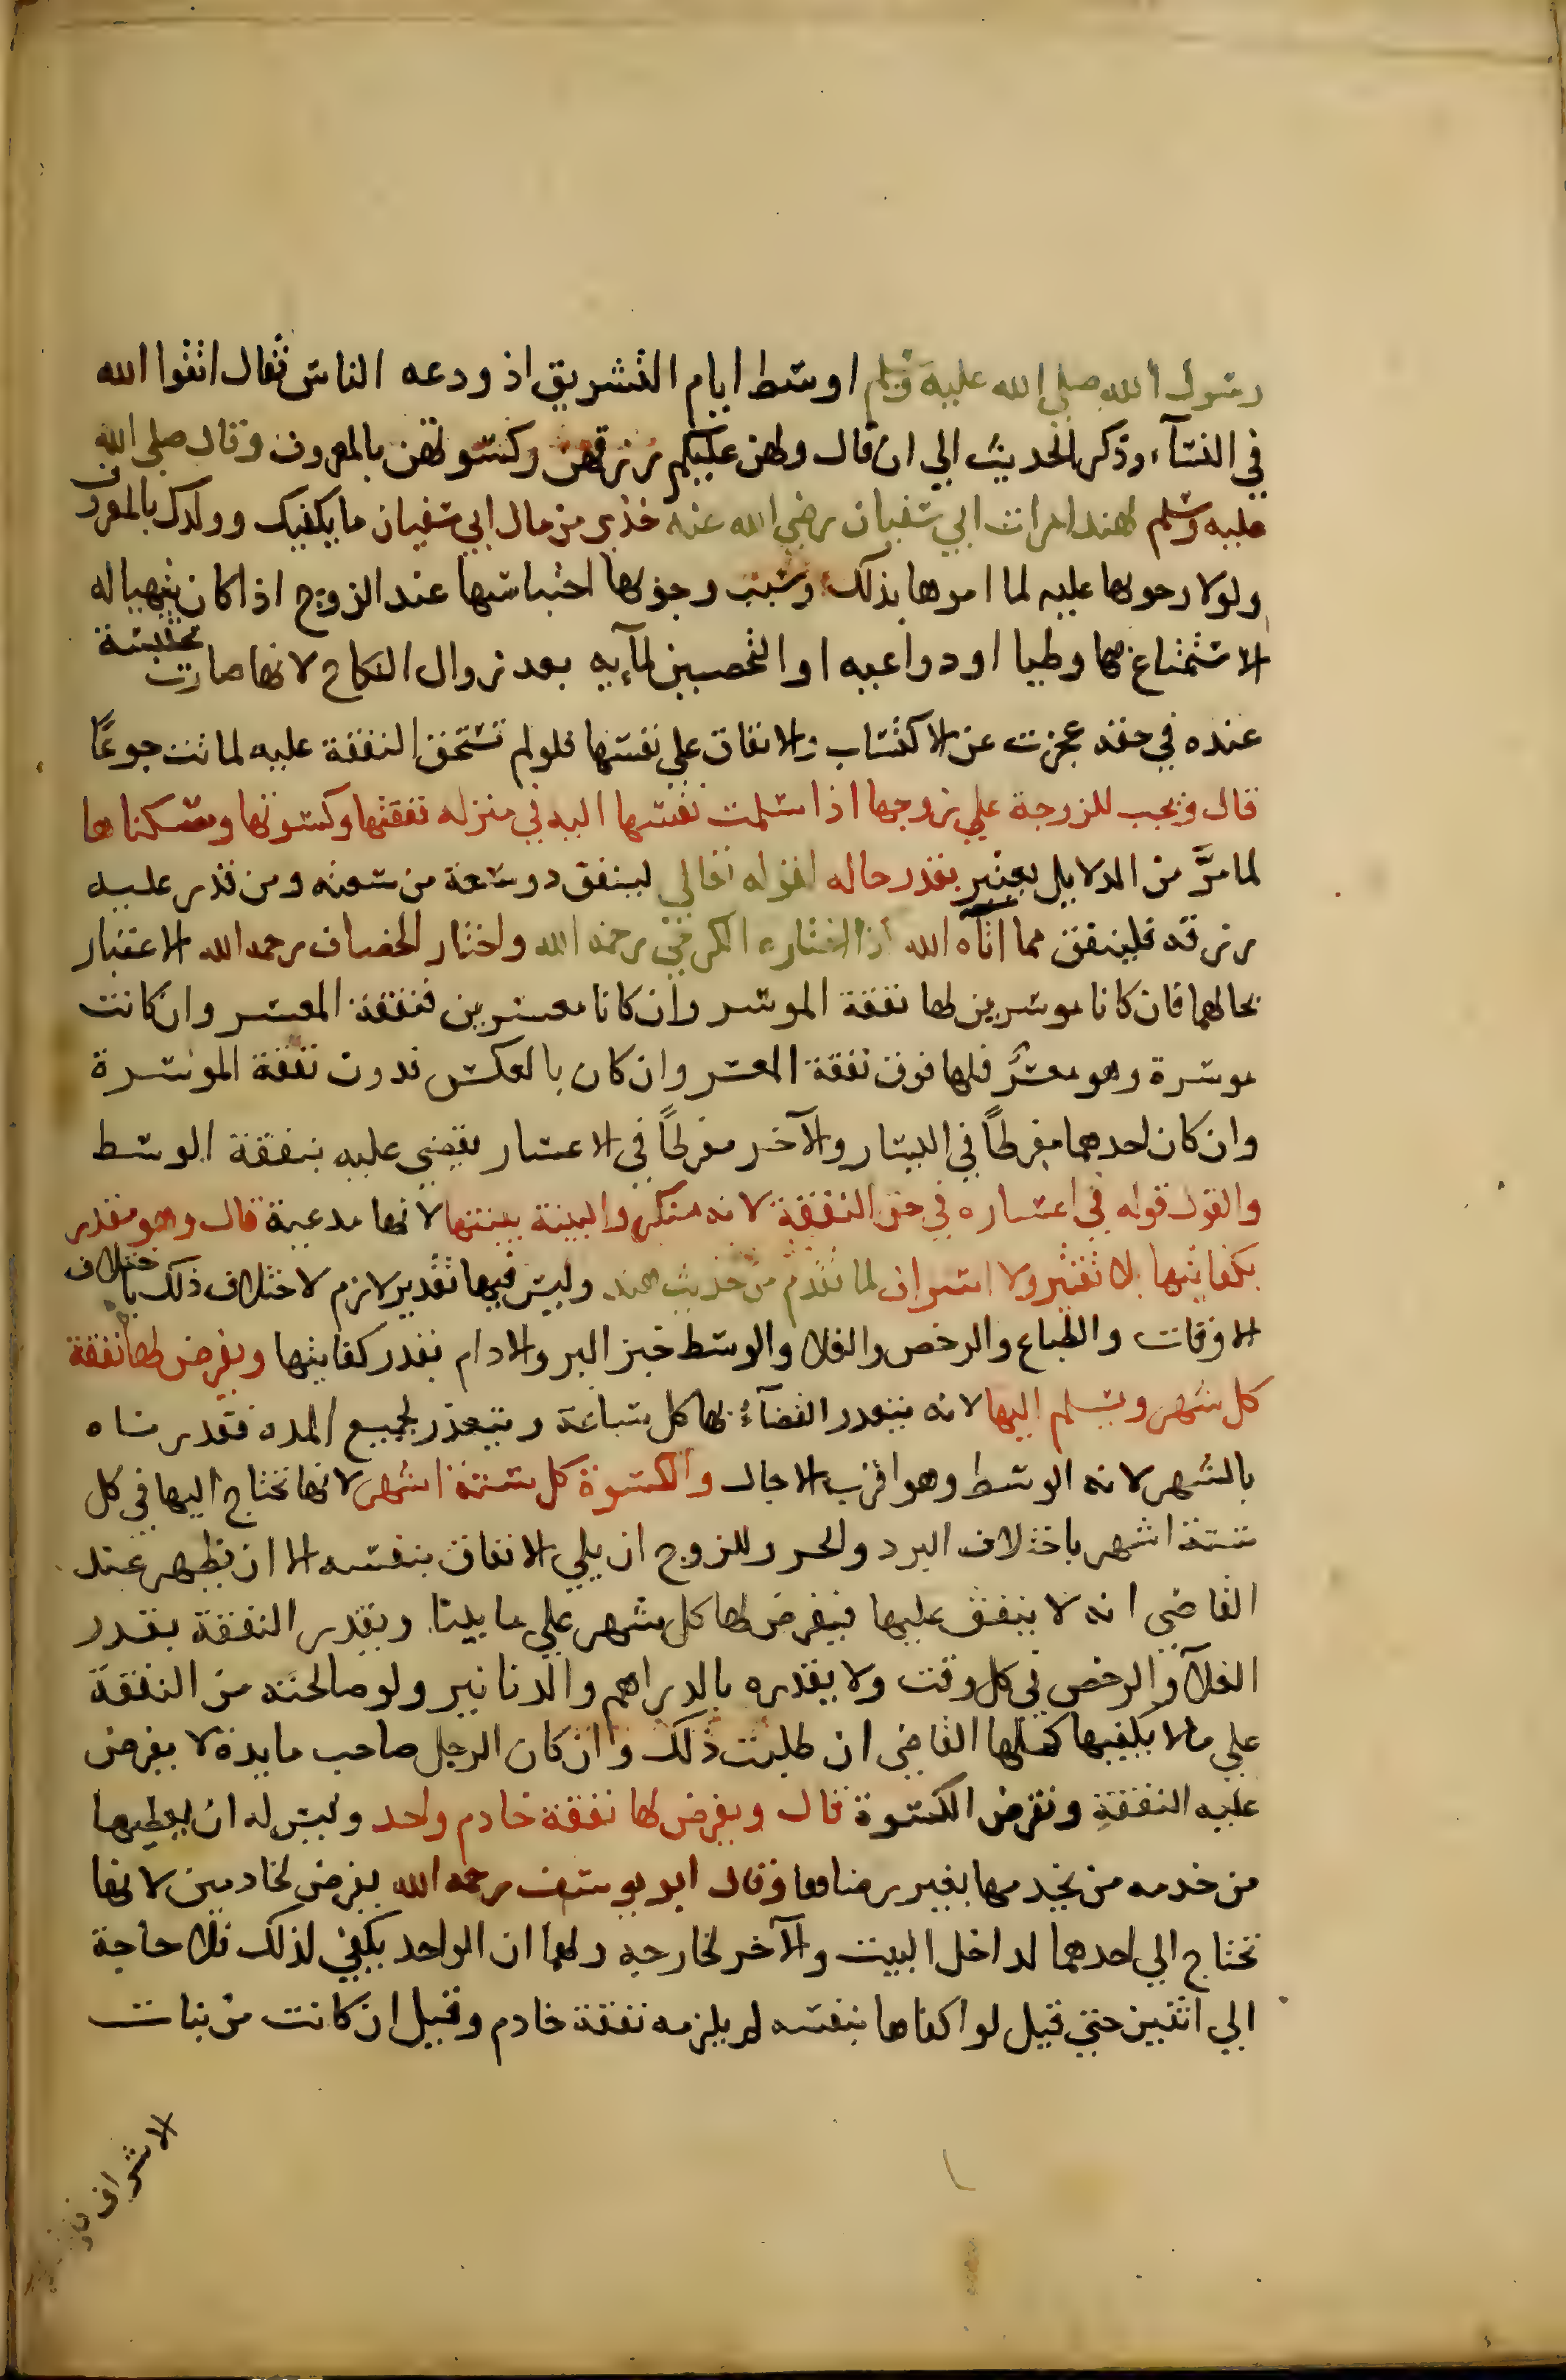 رسول الله صلي الله عليه وسلم اوسط ايام التشريق اذ ودعه الناس فقال اتقوا الله
في النسآء وذكر الحديث الي ان قال ولهن عليكم رزقهن وكسوتهن بالمعروف وقال صلى الله
عليه وسلم لهند امرات ابي سفيان رضي الله عنه خذي من مال ابي سفيان ما يكفيك وولدك بالمعروف
ولولا وجوبها عليه لما امرها بذلك وسبب وجوبها احتباسها عند الزوج اذا كان يتهيا له
الاستمتاع بها وطيا او دواعيه او التحصين لمآيه بعد زوال النكاح لانها صارت محتبسة
عنده في حقه عجزت عن الاكتساب والانفاق علي نفسها فلو لم تستحق النفقة عليه لماتت جوعًا
قال ويجب للزوجة علي زوجها اذا سلمت نفسها اليه في منزله نفقتها وكسوتها وسكناها
لما مرَّ من الدلايل يعتبر بقدر حاله لقوله تعالي لينفق ذو سعة من سعته ومن قدر عليه
رزقه فلينفق مما اتآه الله اختاره الكرخي رحمه الله واختار الخصاف رحمه الله الاعتبار
بحالهما فان كانا موسرين لها نفقة الموسر وان كانا معسرين فنفقة المعسر وان كانت
موسرة وهو معسرٌ فلها فوق نفقة المعسر وان كان بالعكس فدون نفقة الموسرة
وان كان احدهما مفرطاً في اليسار والآخر مفرطاً في الاعسار يقضي عليه بنفقة الوسط
والقول قوله في اعساره في حق النفقة لانه منكر والبينة بينتها لانها مدعية قال وهو مقدر
بكفايتها بلا تقتير ولا اسراف لما تقدم من حديث هند وليس فيها تقدير لازم لاختلاف ذلك باختلاف
الاوقات والطباع والرخص والغلا والوسط خبز البر والادام بقدر كفايتها ويفرض لها نفقة
كل شهر ويسلم اليها لانه يتعذر القضآءُ بها كل ساعة ويتعذر لجميع المده فقدرناه
بالشهر لانه الوسط وهو اقرب الاجال والكسوة كل ستة اشهر لانها تحتاج اليها في كل
ستة اشهر باختلاف البرد والحر وللزوج ان يلي الانفاق بنفسه الا ان يظهر عند
القاضي انه لا ينفق عليها فيفرض لها كل شهر علي ما بينا ويقدر النفقة بقدر
الغلآ والرخص في كل وقت ولا يقدره بالدراهم والدنانير ولو صالحته من النفقة
علي مالا يكفيها كملها القاضي ان طلبت ذلك وان كان الرجل صاحب مايدة لا يفرض
عليه النفقة وتفرض الكسوة قال ويفرض لها نفقة خادم واحد وليس له ان يعطيها
من خدمه من يخدمها بغير رضاها وقال ابو يوسف رحمه الله يفرض لخادمين لانها
تحتاج الي احدهما لداخل البيت والآخر لخارجه ولهما ان الواحد يكفي لذلك فلا حاجة
الي اثنين حتي قيل لو اكفاها بنفسه لم يلزمه نفقة خادم وقيل ان كانت من بنات
الاشراف